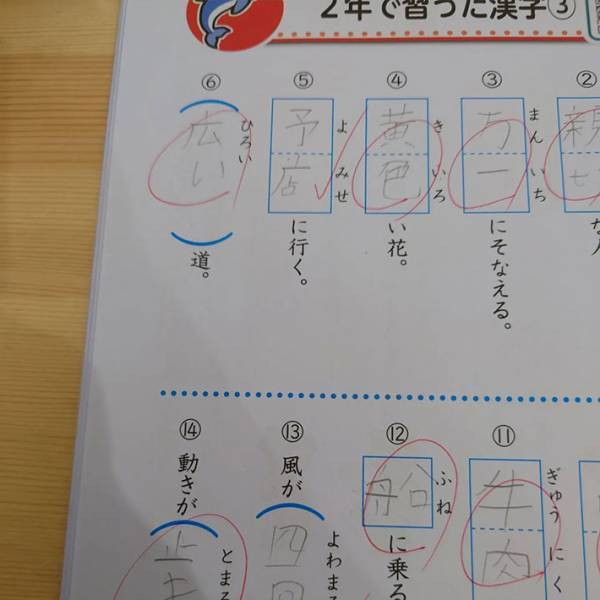 2年で習った漢字③
②
親
③
まん いち
万一にそなえる。
④
き いろ
黄色い花。
⑤
よ みせ
予店に行く。
⑥
ひろい
(広い)道。
⑪
ぎゅう にく
牛肉
⑫
ふね
船に乗る
⑬
よわまる
風が(
⑭
とまる
動きが(止ま